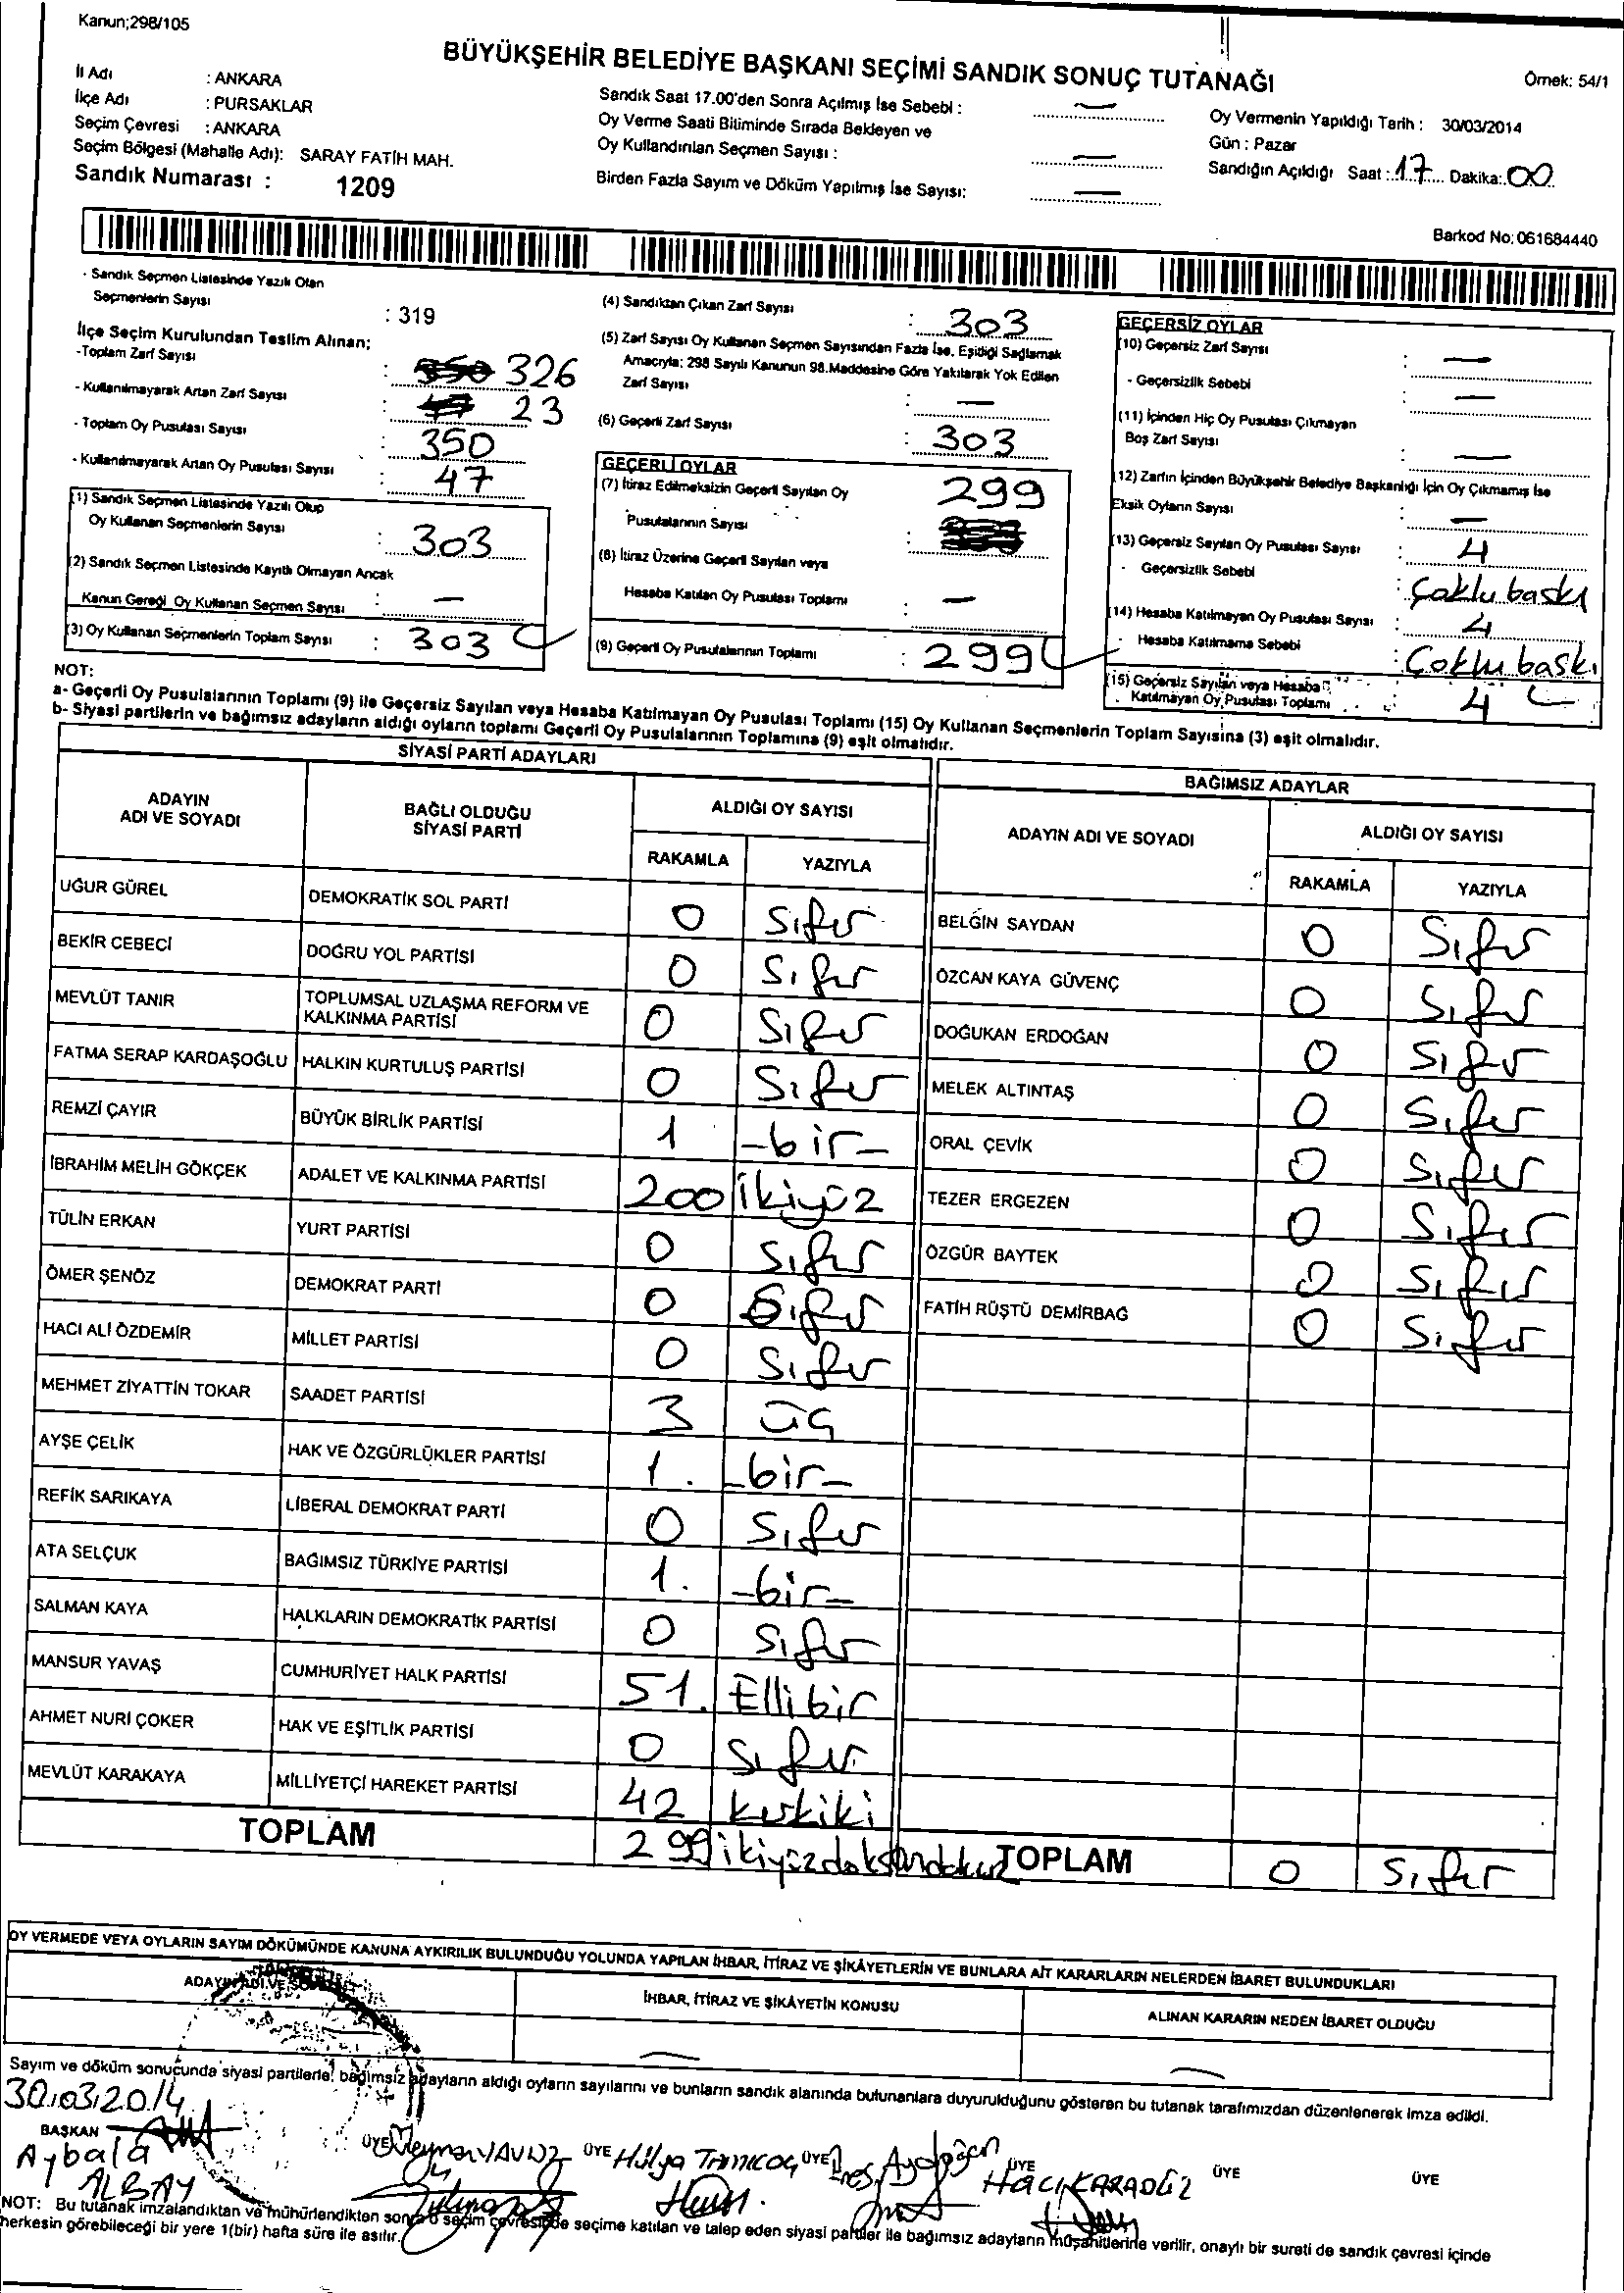 Kanun;298/105
BÜYÜKŞEHİR BELEDİYE BAŞKANI SEÇİMİ SANDIK SONUÇ TUTANAĞI
Örnek: 54/1
İl Adı : ANKARA
İlçe Adı : PURSAKLAR
Seçim Çevresi : ANKARA
Seçim Bölgesi (Mahalle Adı): SARAY FATİH MAH.
Sandık Numarası : 1209
Sandık Saat 17.00'den Sonra Açılmış İse Sebebi : —
Oy Verme Saati Bitiminde Sırada Bekleyen ve
Oy Kullandırılan Seçmen Sayısı : —
Birden Fazla Sayım ve Döküm Yapılmış İse Sayısı: —
Oy Vermenin Yapıldığı Tarih : 30/03/2014
Gün : Pazar
Sandığın Açıldığı Saat : 17 Dakika: 00
Barkod No: 061684440
- Sandık Seçmen Listesinde Yazılı Olan
Seçmenlerin Sayısı : 319
İlçe Seçim Kurulundan Teslim Alınan;
-Toplam Zarf Sayısı : 350 326
- Kullanılmayarak Artan Zarf Sayısı : 47 23
- Toplam Oy Pusulası Sayısı : 350
- Kullanılmayarak Artan Oy Pusulası Sayısı : 47
(1) Sandık Seçmen Listesinde Yazılı Olup
Oy Kullanan Seçmenlerin Sayısı : 303
(2) Sandık Seçmen Listesinde Kayıtlı Olmayan Ancak
Kanun Gereği Oy Kullanan Seçmen Sayısı : —
(3) Oy Kullanan Seçmenlerin Toplam Sayısı : 303
(4) Sandıktan Çıkan Zarf Sayısı : 303
(5) Zarf Sayısı Oy Kullanan Seçmen Sayısından Fazla İse, Eşitliği Sağlamak
Amacıyla; 298 Sayılı Kanunun 98.Maddesine Göre Yakılarak Yok Edilen
Zarf Sayısı : —
(6) Geçerli Zarf Sayısı : 303
GEÇERLİ OYLAR
(7) İtiraz Edilmeksizin Geçerli Sayılan Oy
Pusulalarının Sayısı : 299
(8) İtiraz Üzerine Geçerli Sayılan veya
Hesaba Katılan Oy Pusulası Toplamı : —
(9) Geçerli Oy Pusulalarının Toplamı : 299
GEÇERSİZ OYLAR
(10) Geçersiz Zarf Sayısı : —
- Geçersizlik Sebebi : —
(11) İçinden Hiç Oy Pusulası Çıkmayan
Boş Zarf Sayısı : —
(12) Zarfın İçinden Büyükşehir Belediye Başkanlığı İçin Oy Çıkmamış İse
Eksik Oyların Sayısı : —
(13) Geçersiz Sayılan Oy Pusulası Sayısı : 4
- Geçersizlik Sebebi : Çoklu baskı
(14) Hesaba Katılmayan Oy Pusulası Sayısı : 4
- Hesaba Katılmama Sebebi : Çoklu baskı
(15) Geçersiz Sayılan veya Hesaba
Katılmayan Oy Pusulası Toplamı : 4
NOT:
a- Geçerli Oy Pusulalarının Toplamı (9) ile Geçersiz Sayılan veya Hesaba Katılmayan Oy Pusulası Toplamı (15) Oy Kullanan Seçmenlerin Toplam Sayısına (3) eşit olmalıdır.
b- Siyasi partilerin ve bağımsız adayların aldığı oyların toplamı Geçerli Oy Pusulalarının Toplamına (9) eşit olmalıdır.
SİYASİ PARTİ ADAYLARI
ADAYIN ADI VE SOYADI
BAĞLI OLDUĞU SİYASİ PARTİ
ALDIĞI OY SAYISI
RAKAMLA YAZIYLA
UĞUR GÜREL DEMOKRATİK SOL PARTİ 0 Sıfır
BEKİR CEBECİ DOĞRU YOL PARTİSİ 0 Sıfır
MEVLÜT TANIR TOPLUMSAL UZLAŞMA REFORM VE KALKINMA PARTİSİ 0 Sıfır
FATMA SERAP KARDAŞOĞLU HALKIN KURTULUŞ PARTİSİ 0 Sıfır
REMZİ ÇAYIR BÜYÜK BİRLİK PARTİSİ 1 -bir-
İBRAHİM MELİH GÖKÇEK ADALET VE KALKINMA PARTİSİ 200 ikiyüz
TÜLİN ERKAN YURT PARTİSİ 0 Sıfır
ÖMER ŞENÖZ DEMOKRAT PARTİ 0 Sıfır
HACI ALİ ÖZDEMİR MİLLET PARTİSİ 0 Sıfır
MEHMET ZİYATTİN TOKAR SAADET PARTİSİ 3 üç
AYŞE ÇELİK HAK VE ÖZGÜRLÜKLER PARTİSİ 1. -bir-
REFİK SARIKAYA LİBERAL DEMOKRAT PARTİ 0 Sıfır
ATA SELÇUK BAĞIMSIZ TÜRKİYE PARTİSİ 1. -bir-
SALMAN KAYA HALKLARIN DEMOKRATİK PARTİSİ 0 Sıfır
MANSUR YAVAŞ CUMHURİYET HALK PARTİSİ 51. Ellibir
AHMET NURİ ÇOKER HAK VE EŞİTLİK PARTİSİ 0 Sıfır
MEVLÜT KARAKAYA MİLLİYETÇİ HAREKET PARTİSİ 42 kırkiki
TOPLAM 299 ikiyüzdoksandokuz
BAĞIMSIZ ADAYLAR
ADAYIN ADI VE SOYADI
ALDIĞI OY SAYISI
RAKAMLA YAZIYLA
BELGİN SAYDAN 0 Sıfır
ÖZCAN KAYA GÜVENÇ 0 Sıfır
DOĞUKAN ERDOĞAN 0 Sıfır
MELEK ALTINTAŞ 0 Sıfır
ORAL ÇEVİK 0 Sıfır
TEZER ERGEZEN 0 Sıfır
ÖZGÜR BAYTEK 0 Sıfır
FATİH RÜŞTÜ DEMİRBAĞ 0 Sıfır
TOPLAM 0 Sıfır
OY VERMEDE VEYA OYLARIN SAYIM DÖKÜMÜNDE KANUNA AYKIRILIK BULUNDUĞU YOLUNDA YAPILAN İHBAR, İTİRAZ VE ŞİKÂYETLERİN VE BUNLARA AİT KARARLARIN NELERDEN İBARET BULUNDUKLARI
ADAYIN ADI VE SOYADI
İHBAR, İTİRAZ VE ŞİKÂYETİN KONUSU
ALINAN KARARIN NEDEN İBARET OLDUĞU
— —
Sayım ve döküm sonucunda siyasi partilerle, bağımsız adayların aldığı oyların sayılarını ve bunların sandık alanında bulunanlara duyurulduğunu gösteren bu tutanak tarafımızdan düzenlenerek imza edildi.
30.03.2014
BAŞKAN ÜYE ÜYE ÜYE ÜYE ÜYE ÜYE
Aybala ALBAY
Süleyman YAVUZ
Hülya
HACI KARAOĞUZ
NOT: Bu tutanak imzalandıktan ve mühürlendikten sonra o seçim çevresinde seçime katılan ve talep eden siyasi partiler ile bağımsız adayların müşahitlerine verilir, onaylı bir sureti de sandık çevresi içinde
herkesin görebileceği bir yere 1(bir) hafta süre ile asılır.